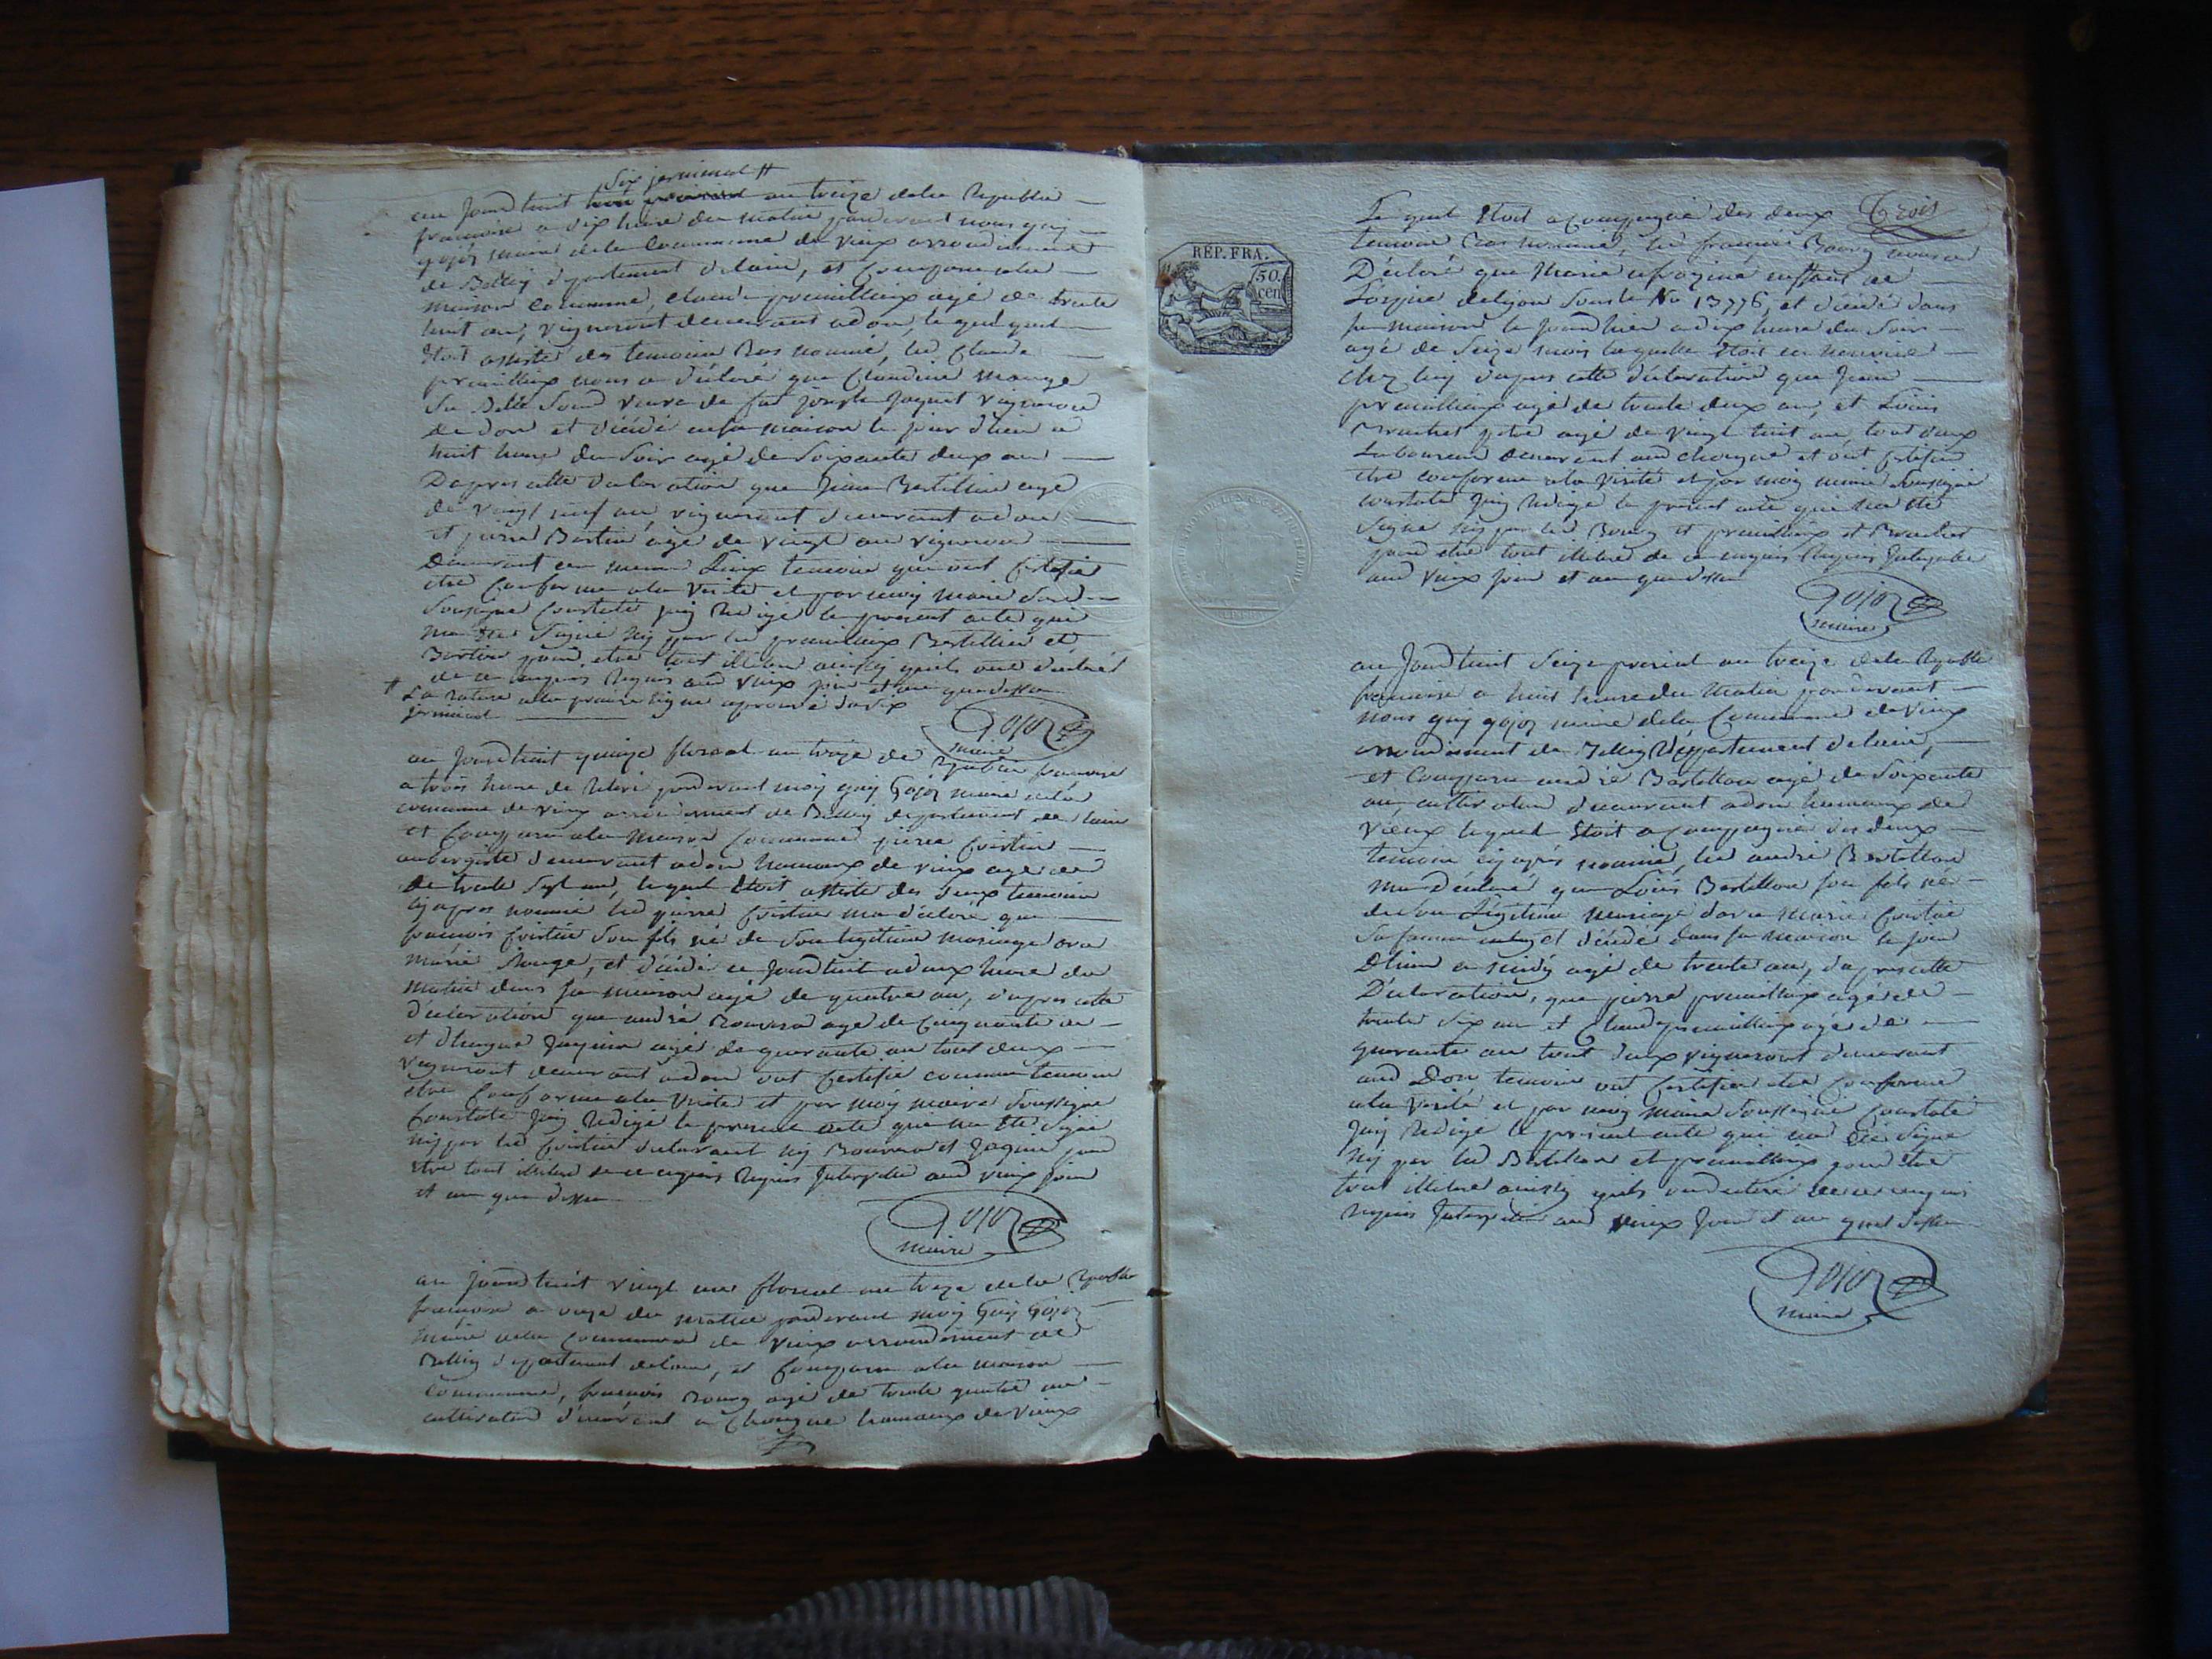 six jerminal #
au Jourdhuit an treize dela Republi
francoise a dix heure du matin pardevant nous guy
gojoz maire dela Commune de Vieux arrondissement
de Belley departement delain, et Comparu ala
maison Commune, Claude premillieux agé de trente
huit an, vigneront demeurant adon, le quel
etoit assisté des temoins bas nommé, led Claude
premillieux nous a déclaré que Claudine monge
sa Belle Soeur veuve de fut joseph Jaquet vigneron
de don et décédé ensa maison le jour dhier a
huit heure du Soir agé de Soixante deux an
Dapres cette declaration que Jean Bertillier agé
de vingt neuf an vigneront demeurant adon
et pierre Bertin agé de vingt an vigneron
Demeurant au meme Lieux temoins qui ont Certifié
etre Conforme ala Verité et par moy maire
Sousigné Constaté jay redigé le present acte qui
na eté Signé ny par led premillieux Bertillier et
Bertin pour etre tout illitéré ainsy quils ont declaré
de ce enquis Requis aud Vieux jour et an que dessus
# La rature ala premiere ligne aprouvé six
jerminal
Gojoz
maire
au Jourdhuit quinze floreal an treize de Republi francoise
a trois heure de pardevant moy guy Gojoz maire dela
commune de vieux arrondissement de Belley departement de lain
et Comparu ala maison Commune pierre Cristin
aubergiste demeurant adon hameaux de vieux agé de
de trente Sept an, lequel etoit assisté des deux temoins
cy apres nommé led pierre Cristin ma déclaré que
francois Cristin Son fils né de Son legitime mariage avec
marie Monge, et décédé ce Jourdhuit a deux heure du
matin dans sa maison agé de quatre an, d'apres cette
déclaration que andré agé de Cinquante an
et Jaquin agé de quarante an tout deux
vigneront demeurant adon ont Certifié comme temoins
etre Conforme ala Verité et par moy maire Soussigné
Constaté Jay redigé le present acte que na eté Signé
ny par led Cristin declarant ny et Jaquin pour
etre tout illitéré de ce enquis Requis Interpellé aud vieux jour
et an que dessus
Gojoz
maire
au Jourdhuit vingt un floreal an treze dela Republi
francoise a onze du matin pardevant moy Guy Gojoz
maire dela Commune de Vieux arrondissement de
Belley departement delain, et Comparu ala maison
Commune, francois Bourg agé de trente quatre an
cultivateur demeurant a Chongne hameaux de Vieux
Trois
REP. FRA.
50.
cen
Le quel etoit acompagné des deux
temoins bas nommé, led francois Bourg nous a
Déclaré que Marie enfant de
L'ospice delyon Sous le No 13776, et décédé dans
sa maison le jour hier a dix heure du Soir
agé de Seize mois laquelle etoit en nourice
chez luy dapres cette déclaration que Jean
premillieux agé de trente deux an, et Louis
Brachet agé de vingt huit an, tout deux
Laboureur demeurant aud Chongne et ont Certifié
etre conforme ala verité et par moy maire Soussigné
constaté Jay redigé le present acte qui na eté
Signé ny par led Bourg et premillieux et Brachet
pour etre tout illitéré de ce enquis Requis Interpellé
aud Vieux jour et an que dessus
Gojoz
maire
au Jourdhuit Seize prerial an treize dela Republi
francoise a huit heure du Matin pardevant
nous guy gojoz maire dela Commune de Vieux
arrondissement de Belley Departement delain,
et Comparu andré Bertillion agé de Soixante
an, cultivateur demeurant adon hameaux de
Vieux lequel Etoit acompagné des deux
temoins cy apres nommé, led andré Bertillion
ma déclaré que Louis Bertillion Son fils né
de Son Légitime mariage avec marie Cristin
Sa femme et décédé dans sa maison le jour
Dhier a midy agé de trente an, dapres cette
Déclaration, que pierre premillieux agé de
trente Six an et Claude premillieux agé de
quarante an tout deux vigneront demeurant
aud Don temoins ont Certifié etre Conforme
ala Verité et par moy maire Soussigné Constaté
Jay redigé le present acte qui na été Signé
ny par led Bertillion et premillieux pour etre
tout illitéré ainsy quils ont déclaré de ce enquis
requis Interpellé aud vieux Jour et an quel dessus
Gojoz
maire